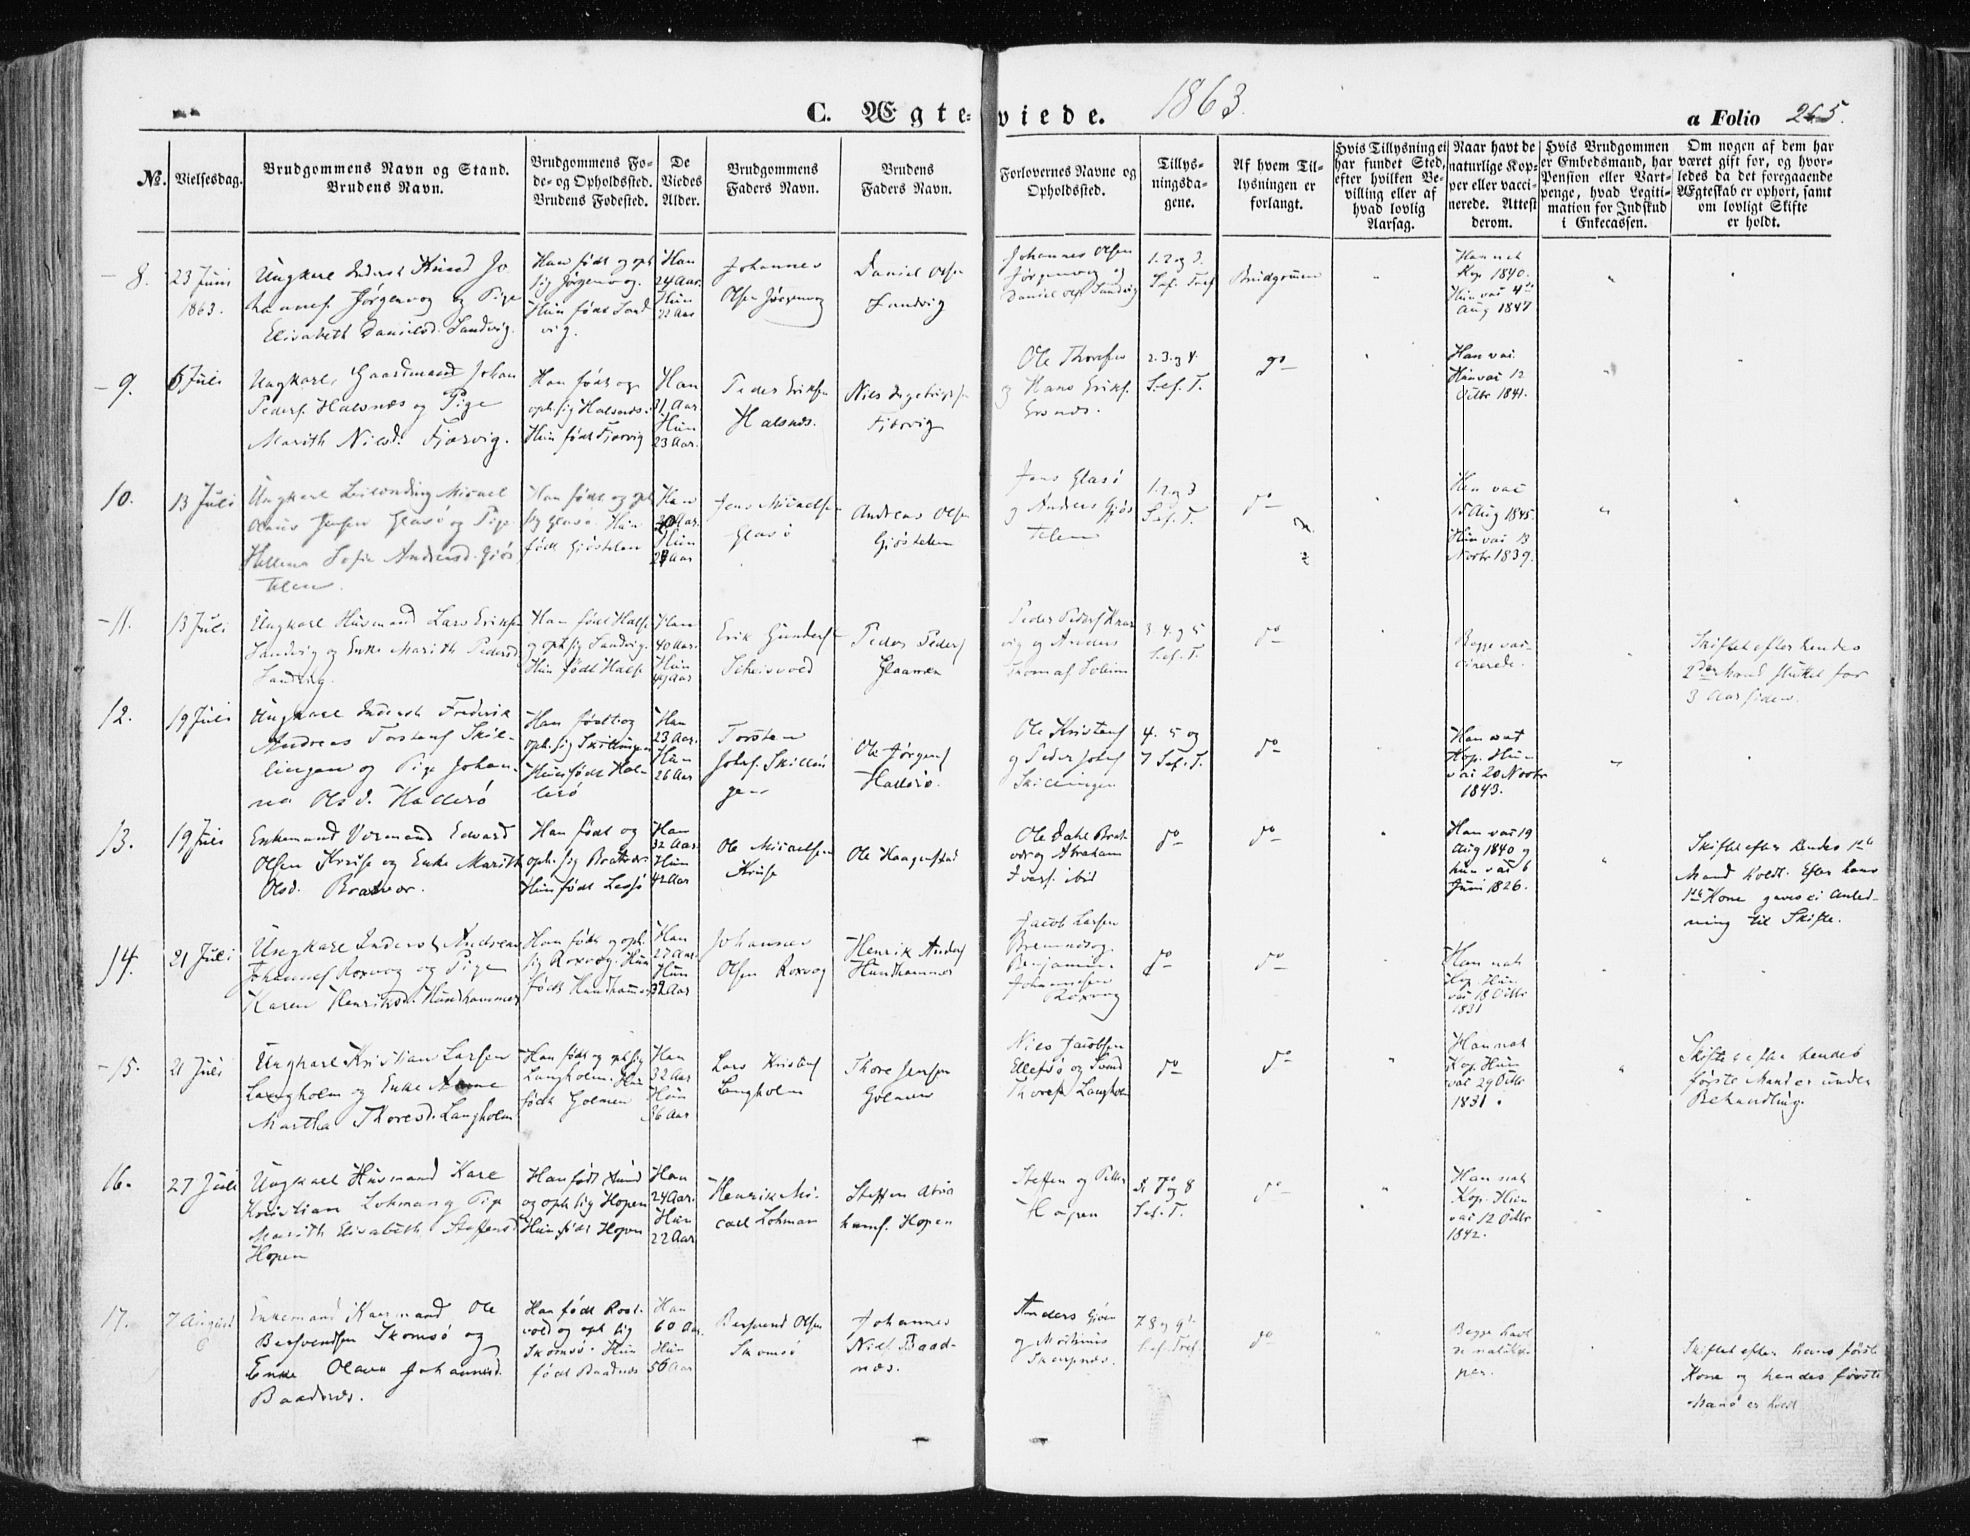 C. Ægte-viede. 1863. a Folio 265.
No. Vielsesdag. Brudgommens Navn og Stand. Brudens Navn. Brudgommens Fode- og Opholdssted. Brudens Fødested. De Viedes Alder. Brudgommens Faders Navn. Brudens Faders Navn. Forlovernes Navne og Opholdssted. Tillysningsdagene. Af hvem Tillysningen er forlangt. Hvis Tillysning ei har fundet Sted, efter hvilken Bevilling eller af hvad lovlig Aarsag. Naar havt de naturlige Kopper eller vaccinerede. Attest derom. Hvis Brudgommen er Embedsmand, har Pension eller Vartpenge, hvad Legitimation for Indskud i Enkecassen. Om nogen af dem har været gift før, og hvorledes da det foregaaende Ægteskab er ophørt, samt om lovligt Skifte er holdt.
8. 23 Juni 1863.
Ungkarl Inderst Knud Johannes. Jørgenvog og Pige Elisabeth Danielsd. Sandvig.
Han født og oph sig Jørgenvog. Hun født Sandvig.
Han 24 Aar. Hun 22 Aar
Johannes Olsen Jørgenvog
Daniel Olsen Sandvig
Johannes Olsen Jørgenvog og Daniel Ols Sandvig
1. 2 og 3. S. ef. Tref
Brudgommen
Han nat Kop 1840. Hun vac 4de Aug 1847
9. 6 Juli
Ungkarl, Gaardmand Johan Peders. Halsnæs og Pige Marith Nielsd. Fjørvig.
Han født og oph. sig Halsnæs. Hun født Fjørvig
Han 31 Aar. Hun 23 Aar.
Peder Eriksen Halsnæs.
Niels Fjørvig
Ole Thoresen og Hans Eriks.
2. 3. og 4. S. ef. T.
do
Han vac. Hun vac 12 Octbr 1841.
10. 13 Juli
Ungkarl Leilending Micael Jensen Glasø og Pige Hellena Sofie Andreasd. Gjøstelen.
Han født og oph sig Glasø. Hun født Gjøstelen
Han Aar. Hun Aar
Jens Micaelsen Glasø
Andreas Olsen Gjøstelen
Jens Glasø og Anders Gjøstelen
1. 2 og 3 S. ef. T.
do
Han vac 15 Aug 1845. Hun vac 13 Novbr 1839.
11. 13 Juli
Ungkarl Husmand Lars Eriksen Sandvig og Enke Marith Pedersd Sandvig.
Han født Halse og oph sig Sandvig. Hun født Halse
Han 40 Aar. Hun Aar
Erik Gunders
Peder Peders
Peder Peders og Anders Thomas Soleim
3. 4. og 5 S. ef. T.
do
Begge vaccinerede.
Skiftet efter hendes 2den Mand sluttet for 3 Aar siden.
12. 19 Juli
Ungkarl Inderst Frederik Andreas Torstens Skillingen og Pige Johanna Olsd. Hallerø
Han født og oph. sig Skillingen Hun født Hallerø
Han 23 Aar. Hun 26 Aar
Torsten Johs. Skillingen
Ole Jørgens Hallerø.
Ole Kristens og Peder Johns Skillingen
4. 5 og 7 S. ef. T.
do
Han nat Kop. Hun vac 20 Novbr 1843.
13. 19 Juli
Enkemand Edvard Olsen Kruse og Enke Marith Olsd. Bratvær.
Han født og oph. sig Bratvær. Hun født Lesjø
Han 32 Aar. Hun 42 Aar
Ole Micaelsen Kruse
Ole Haagenstad
Ole Dahl Bratvær og Abraham Ivers. ibid
do
do
Han vac 19 Aug 1840 og hun vac 6 Juni 1826.
Skiftet efter hendes 1ste Mand holdt. Efter hans 1ste Kone gaves ei Anledning til Skifte.
14. 21 Juli
Ungkarl Inderst Andreas Johannes Roxvog og Pige Karen Henriksd. Hundhammer
Han født og oph. sig Roxvog. Hun født Hundhammer
Han 27 Aar. Hun 32 Aar
Johannes Olsen Roxvog
Henrik Anders Hundhammer
Jacob Larsen Bremnes og Benjamin Johannesen Roxvog
do
do
Han nat. Kop. Hun vac 18 Octbr 1831
15. 21 Juli
Ungkarl Kristian Larsen Langholm og Enke Anne Martha Thoresd. Langholm
Han født og oph sig Langholm. Hun født Golmen
Han 32 Aar Hun 36 Aar
Lars Kristens Langholm
Thore Jensen Golmen
Niels Jacobsen Ellefsø og Svend Thores Langholm
do
do
Han nat Kop. Hun vac 29 Octbr 1831.
Skiftet efter hendes første Mand er under Behandling.
16. 27 Juli
Ungkarl Husmand Kare Kristian Lohman og Pige Marith Elisabeth Steffensd Hopen
Han født Sund og oph sig Hopen Hun født Hopen
Han 24 Aar. Hun 22 Aar
Henrik Micael Lohman
Steffen Abrahams. Hopen
Steffen og Petter Hopen
7 og 8 S. ef. T.
do
Han nat Kop. Hun vac 12 Octbr 1842.
17. 7 August
Enkemand Kaarmand Ole Bersvendsen Skomsø og Enke Olava Johannesd. Baadsnæs.
Han født Rostvold og oph sig Skomsø. Hun født Baadnæs
Han 60 Aar. Hun 56 Aar
Bersvend Olsen Skomsø
Johannes Niels Baadnæs.
Anders Gjøen og Skarpnæs.
7. 8 og 9de S. ef. Tref.
do
Begge havt de natl. Kopper.
Skiftet efter hans første Kone og hendes første Mand er holdt